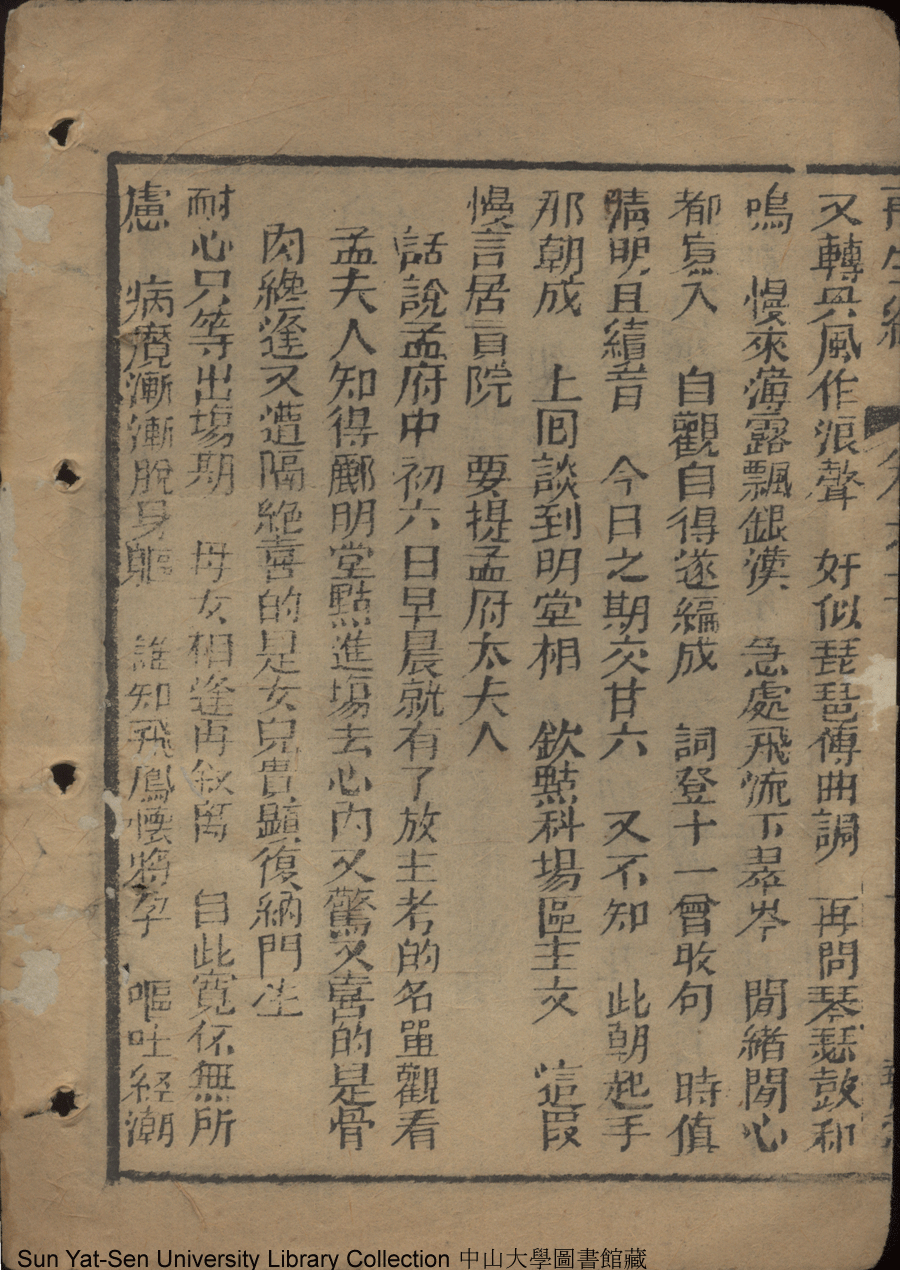 再生緣 卷之十
又轉與風作浪聲 好似琵琶傳曲調 再問琴瑟鼓和
鳴 慢來薄露飄銀漢 急處飛流下翠岑 閒緒閒心
都寫入 自觀自得遂編成 詞登十一曾收句 時值
晴明且續昔 今日之期交甘六 又不知 此朝起手
那朝成 上囘談到明堂相 欽點科場區主文 這叚
慢言居貢院 要提孟府太夫人
話說孟府中初六日早晨就有了放主考的名單觀看
孟夫人知得酈明堂點進塲去心內又驚又喜的是骨
肉終逢又遭隔絶喜的是女兒貴顯復納門生
耐心只等出塲期 母女相逢再敘离 自此寬伓無所
慮 病魔漸漸脫身軀 誰知飛鳳懷將孕 嘔吐経潮
Sun Yat-Sen University Library Collection 中山大學圖書館藏